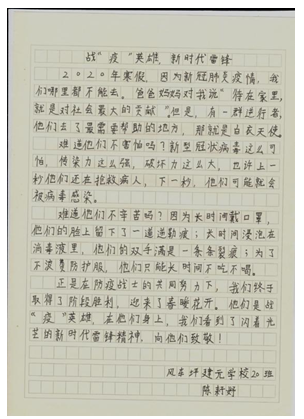 战“疫”英雄，新时代雷锋
2020年寒假，因为新冠肺炎疫情，我
们哪里都不能去。爸爸妈妈对我说“待在家里，
就是对社会最大的贡献”。但是，有一群逆行者，
他们去了最需要帮助的地方，那就是白衣天使。
难道他们不害怕吗？新型冠状病毒这么可
怕，传染力这么强，破坏力这么大，也许上一
秒他们还在抢救病人，下一秒，他们可能就会
被病毒感染。
难道他们不辛苦吗？因为长时间戴口罩，
他们的脸上留下了一道道勒痕；长时间浸泡在
消毒液里，他们的双手满是一条条裂痕；为了
不浪费防护服，他们只能长时间不吃不喝。
正是在防疫战士的共同努力下，我们终于
取得了阶段胜利，迎来了春暖花开。他们是战
“疫”英雄，在他们身上，我们看到了闪着光
芒的新时代雷锋精神，向他们致敬！
凤在坪建元学校20班
陈轩妤